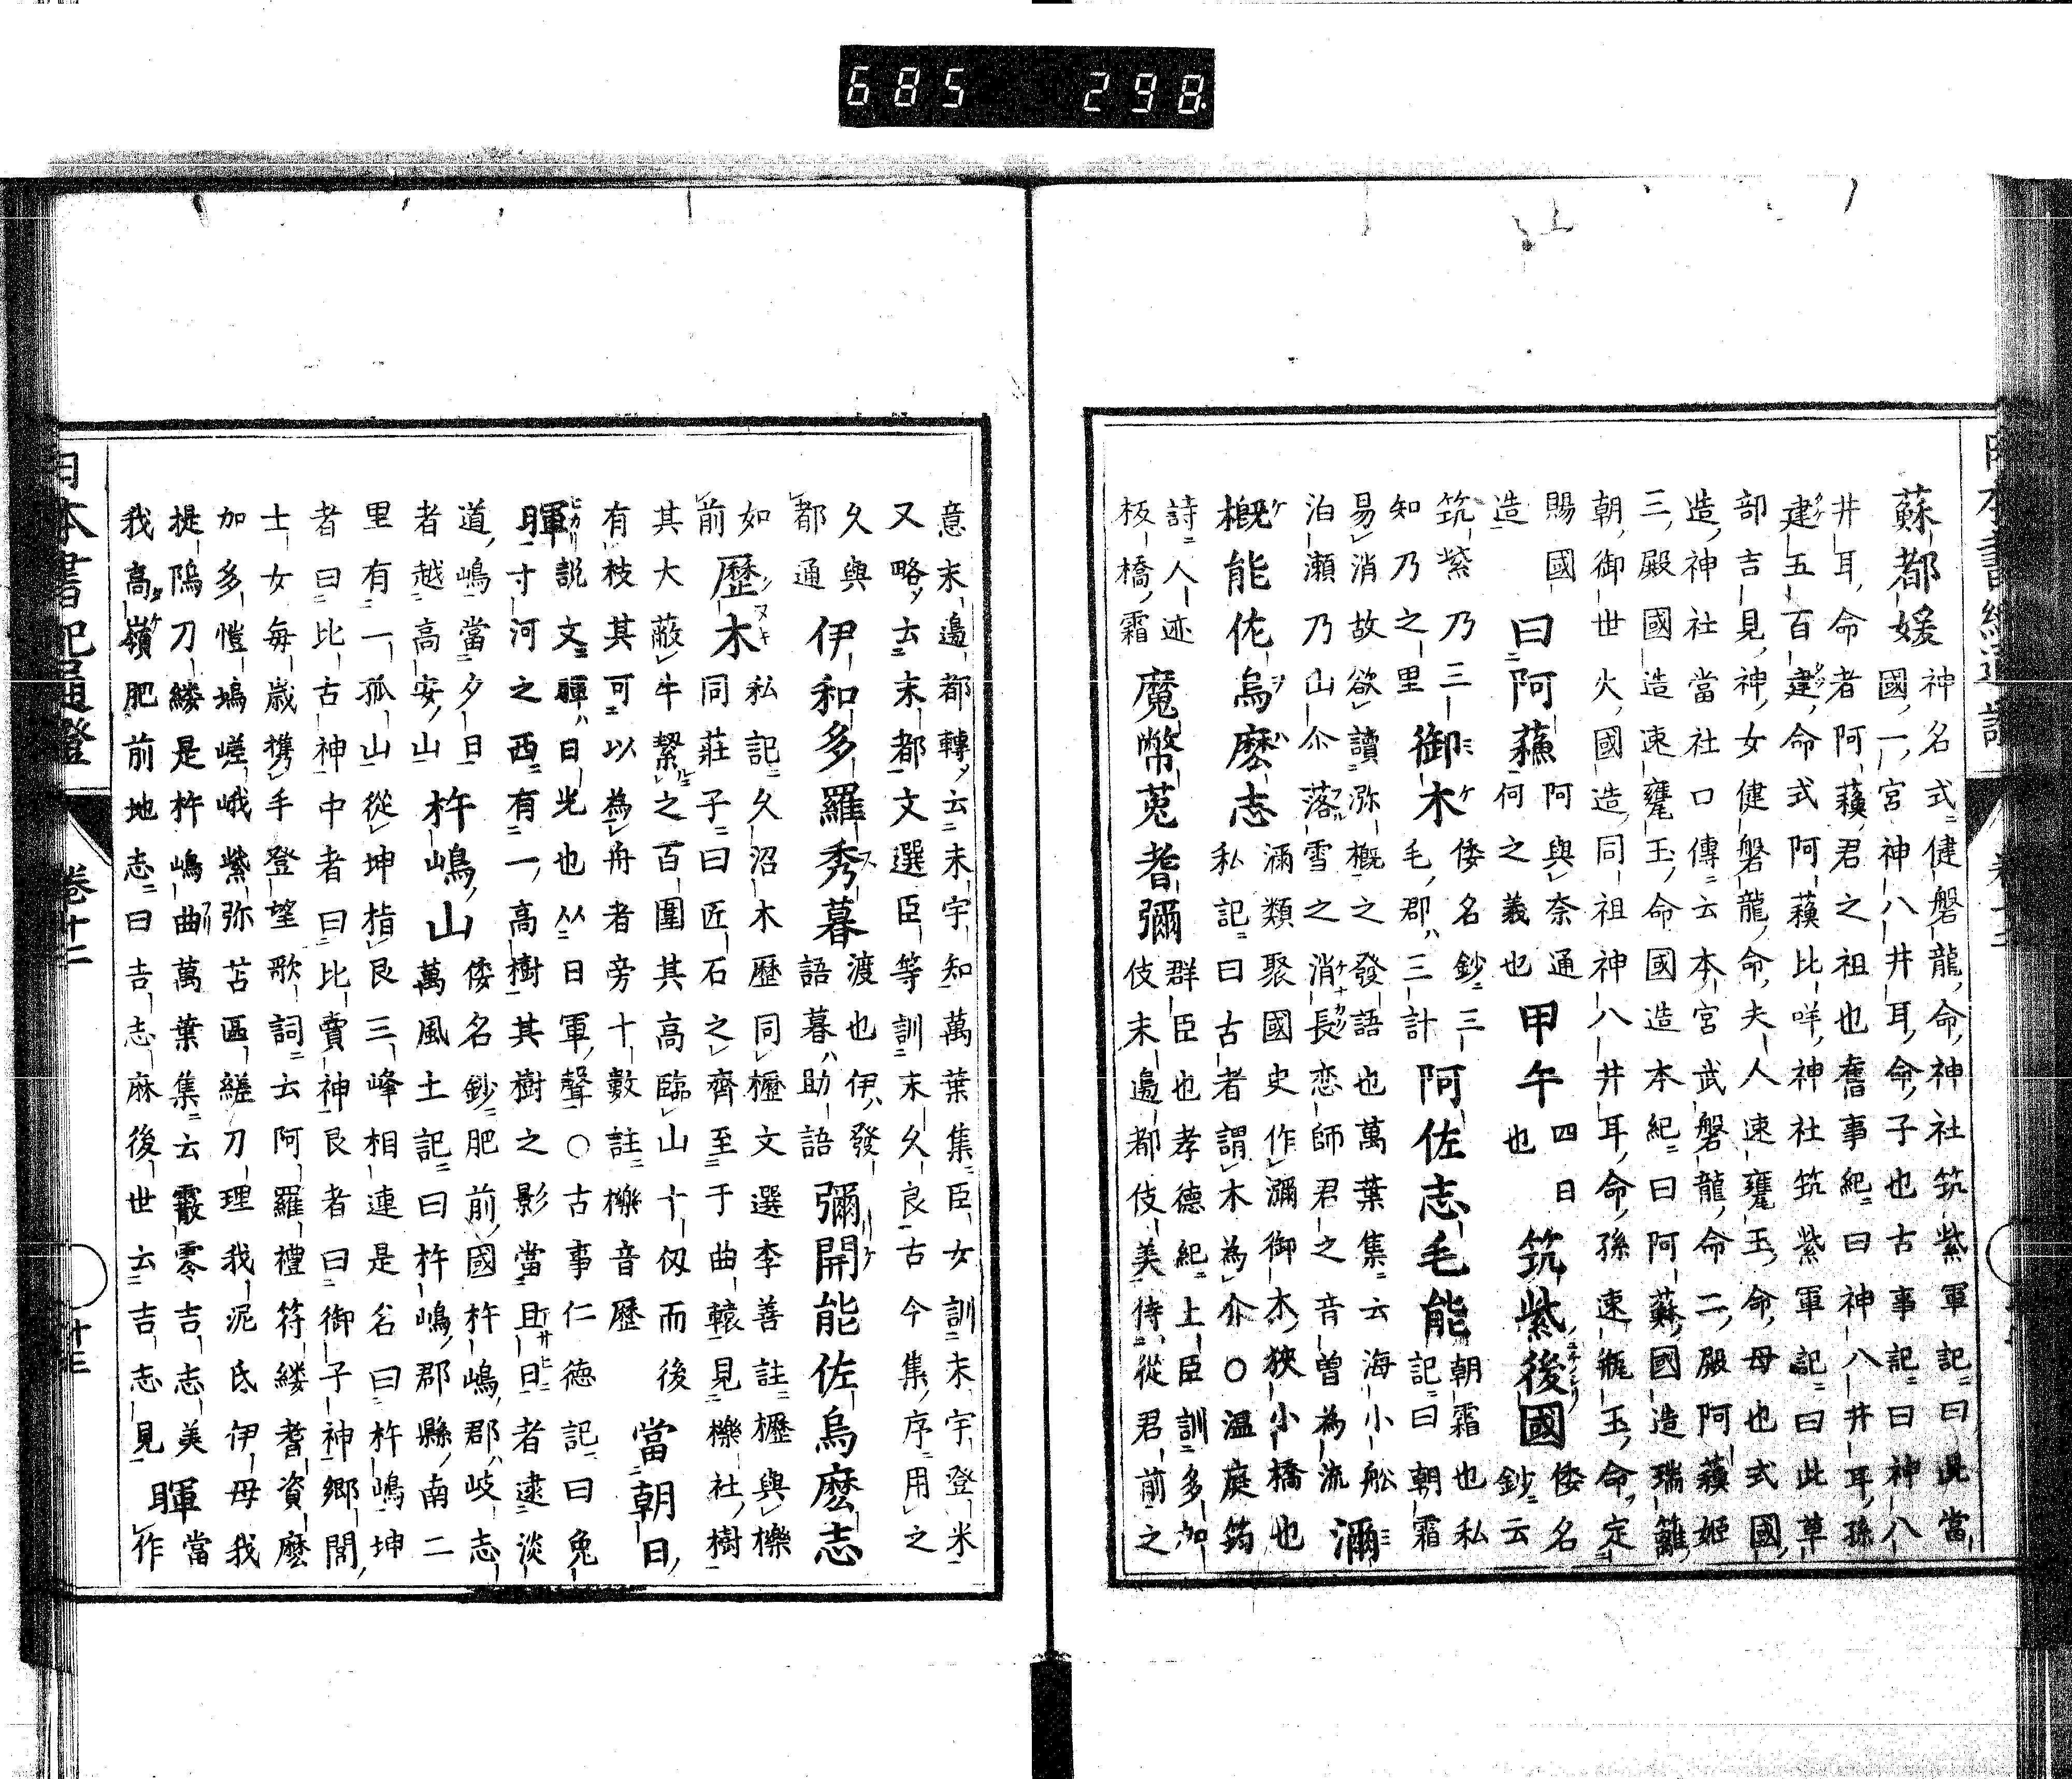 蘇都媛
神名式健磐龍命神社筑紫軍記曰此當
國一宮神八井耳命子也古事記曰神八
井耳命者阿蘓君之祖也舊事紀曰神八井耳孫
建五百建命式阿蘓比咩神社筑紫軍記曰此草
部吉見神女健磐龍命夫人速甕玉命母也式國
造神社當社口傳云本宮武磐龍命二殿阿蘓姬
三殿國造速甕玉命國造本紀曰阿蘇國造瑞籬
朝御世火國造同祖神八井耳命孫速瓶玉命定
賜國
造
曰阿蘓
阿與奈通
何之義也
甲午
四日
也
筑紫後國
倭名
鈔云
筑紫乃三
知乃之里
御木
倭名鈔三
毛郡三計
阿佐志毛能
朝霜也私
記曰朝霜
易消故欲讀瀰概之發語也萬葉集云海小舩
泊瀬乃山尒落雪之消長恋師君之音曽為流
瀰
概能佐烏麼志
瀰類聚國史作瀰御木狹小橋也
私記曰古者謂木為介○温庭筠
詩人迹
板橋霜
魔幣菟耆彌
群臣也孝德紀上臣訓多加
伎末邊都伎美侍從君前之
意末邊都轉云末宇知萬葉集臣女訓末宇登米
又略云末都文選臣等訓末久良古今集序用之
久與
都通
伊和多羅秀暮
渡也伊發
語暮助語
彌開能佐烏麼志
如
前
歷木
私記久沼木歷同櫪文選李善註櫪與櫟
同莊子曰匠石之齊至于曲轅見櫟社樹
其大蔽牛絜之百圍其高臨山十仭而後
有枝其可以為舟者旁十數註櫟音歷
當朝日
暉
説文暉日光也从日軍聲○古事仁德記曰兔
寸河之西有一高樹其樹之影當旦日者逮淡
道嶋當夕日
者越高安山
杵嶋山
倭名鈔肥前國杵嶋郡岐志
萬風土記曰杵嶋郡縣南二
里有一孤山從坤指艮三峰相連是名曰杵嶋坤
者曰比古神中者曰比賣神艮者曰御子神鄉閭
士女毎歳携手登望歌詞云阿羅禮符縷耆資麼
加多愷塢嵯峨紫弥苫區縒刀理我泥氐伊母我
提塢刀縷是杵嶋曲萬葉集云霰零吉志美
我高嶺肥前地志曰吉志麻後世云吉志見
暉
當
作
日本書紀通證
卷十二
十三